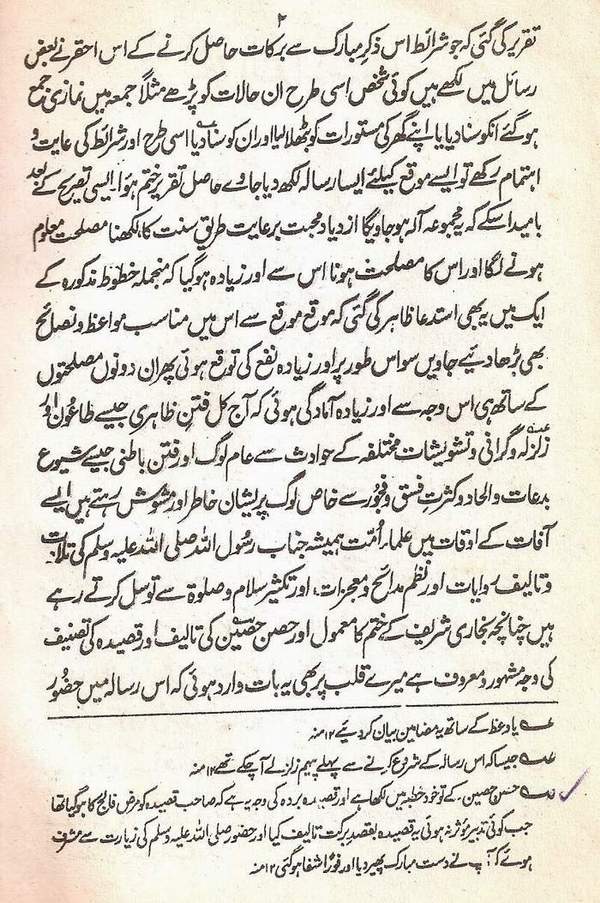 ۲
تقریر کی گئی کہ جو شرائط اس ذکر مبارک سے برکات حاصل کرنے کے اس احقر نے بعض
رسائل میں لکھے ہیں کوئی شخص اسی طرح ان حالات کو پڑھے مثلاً جمعہ میں نمازی جمع
ہو گئے انکو سنا دیا یا اپنے گھر کی مستورات کو بٹھلا لیا اور ان کو سنا دیا اسی طرح اور شرائط کی رعایت و
اہتمام رکھے تو ایسے موقع کیلئے ایسا رسالہ لکھ دیا جاوے حاصل تقریر ختم ہوا۔ ایسی تصریح کے بعد
بامید اسکے کہ یہ مجموعہ آلہ ہو جاویگا ازدیاد محبت برعایت طریق سنت کا، لکھنا مصلحت معلوم
ہونے لگا اور اس کا مصلحت ہونا اس سے اور زیادہ ہو گیا کہ منجملہ خطوط مذکورہ کے
ایک میں یہ بھی استدعا ظاہر کی گئی کہ موقع موقع سے اس میں مناسب مواعظ و نصائح
بھی بڑھا دیئے جاویں سو اس طور پر اور زیادہ نفع کی توقع ہوئی پھر ان دونوں مصلحتوں
کے ساتھ ہی اس وجہ سے اور زیادہ آمادگی ہوئی کہ آج کل فتن ظاہری جیسے طاعون اور
زلزلہ و گرانی و تشویشات مختلفہ کے حوادث سے عام لوگ اور فتن باطنی جیسے شیوع
بدعات و الحاد و کثرت فسق و فجور سے خاص لوگ پریشان خاطر اور مشوش رہتے ہیں ایسے
آفات کے اوقات میں علماء امت ہمیشہ جناب رسول اللہ صلی اللہ علیہ وسلم کی تلاوت
و تالیف روایات اور نظم مدائح و معجزات، اور تکثیر سلام و صلوٰۃ سے توسل کرتے رہے
ہیں چنانچہ بخاری شریف کے ختم کا معمول اور حصن حصین کی تالیف اور قصیدہ کی تصنیف
کی وجہ مشہور و معروف ہے میرے قلب پر بھی یہ بات وارد ہوئی کہ اس رسالہ میں حضور
عہ یا وعظ کے ساتھ یہ مضامین بیان کر دیئے ۱۲ منہ
عہ جیسا کہ اس رسالہ کے شروع کرنے سے پہلے پیہم زلزلے آ چکے تھے ۱۲ منہ
حصن حصین کے تو خود خطبہ میں لکھا ہے اور قصیدہ بردہ کی وجہ یہ ہے کہ صاحب قصیدہ کو مرض فالج کا ہو گیا تھا
جب کوئی تدبیر مؤثر نہ ہوئی یہ قصیدہ بقصد برکت تالیف کیا اور حضور صلی اللہ علیہ وسلم کی زیارت سے مشرف
ہوئے کہ آپ نے دست مبارک پھیر دیا اور فوراً شفا ہو گئی ۱۲ منہ